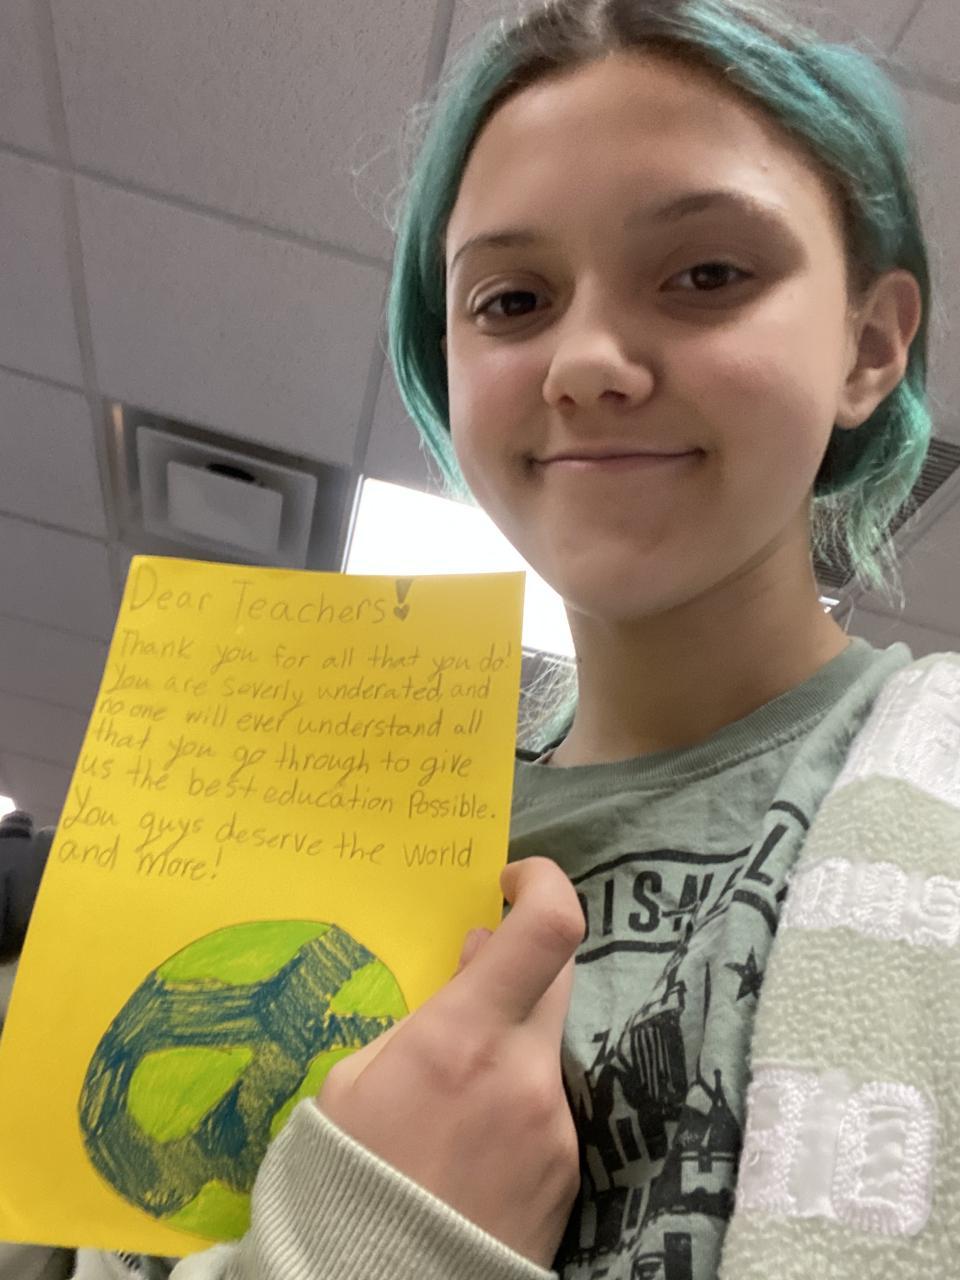 Dear Teachers!
Thank you for all that you do!
You are severly underated and
no one will ever understand all
that you go through to give
us the best education Possible.
You guys deserve the world
and more!